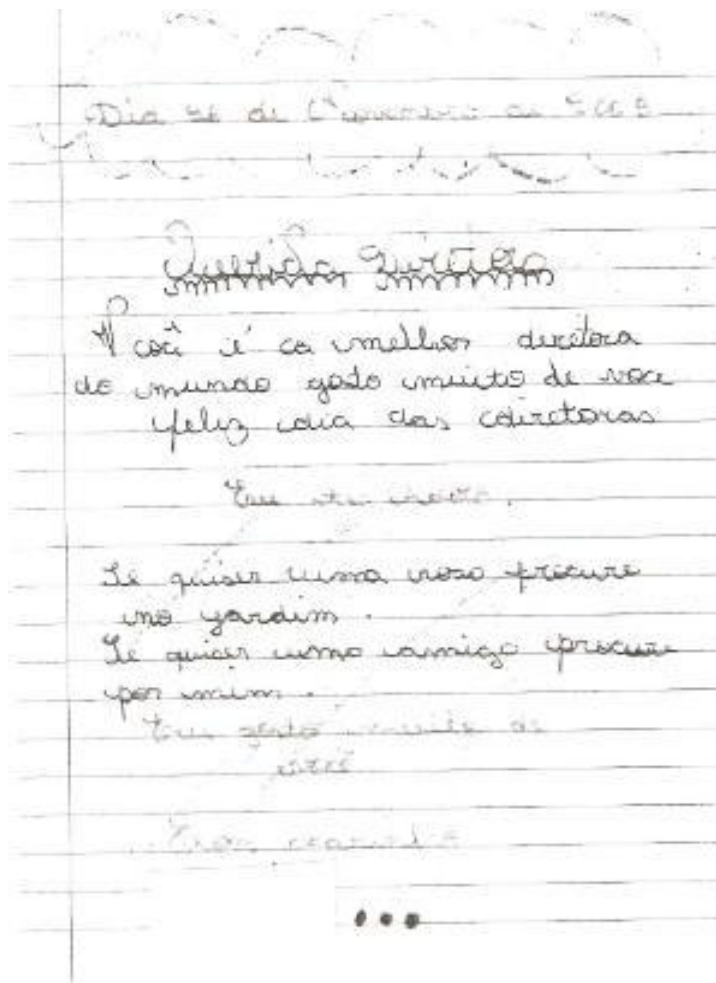 Dia de de
Querida Diretora
Você é a melhor diretora
do mundo gosto muito de voce
feliz dia das diretoras
Eu te adoro.
Se quiser uma roza procure
no gardim.
Se quiser uma amiga procure
por mim.
Eu gosto muito de
você
...